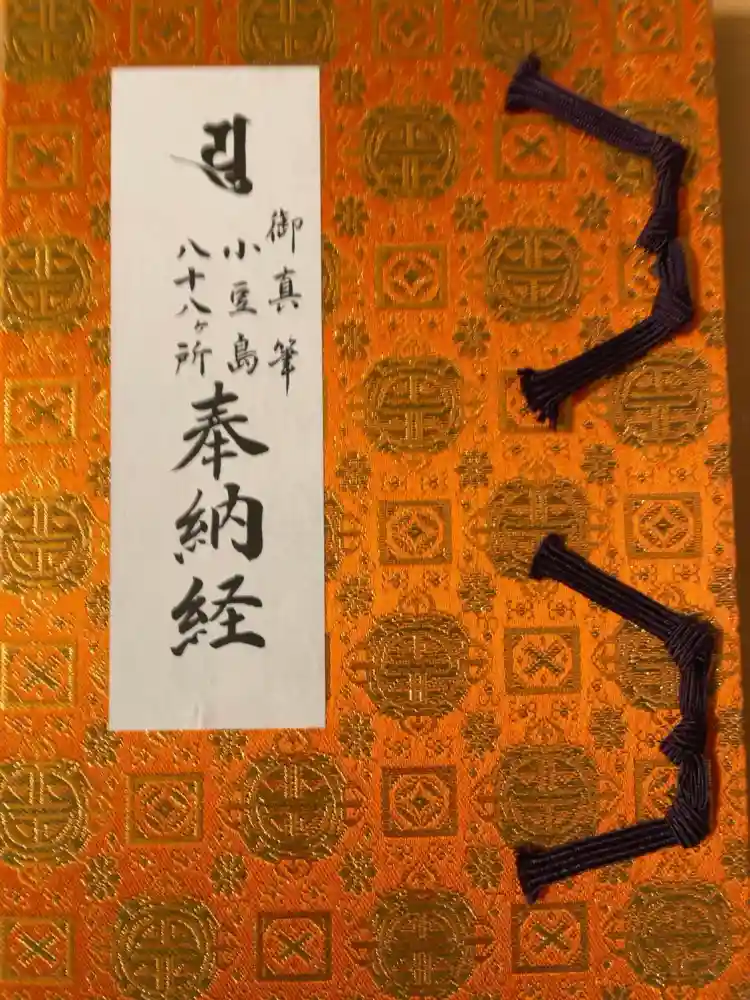 𑖧𑖲
御真筆
小豆島
八十八ヶ所
奉納経